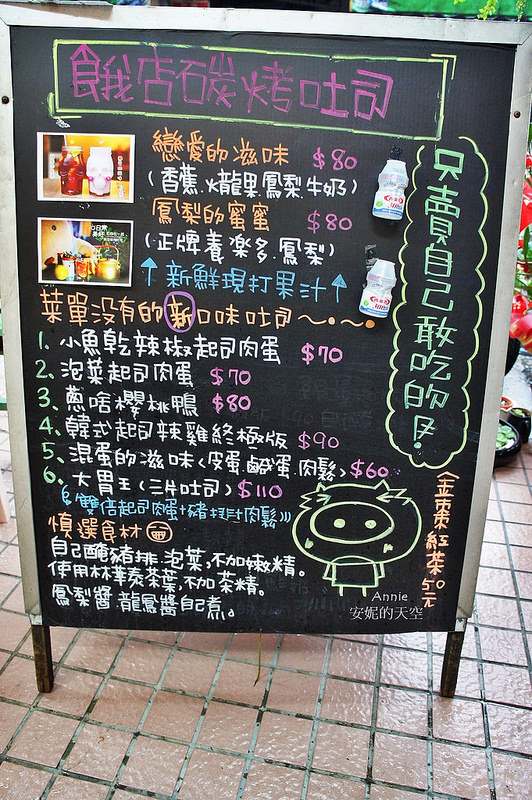 餓店碳烤吐司
戀愛的滋味 $80
(香蕉.火龍果.鳳梨.牛奶)
鳳梨的蜜蜜 $80
(正牌養樂多.鳳梨)
↑新鮮現打果汁↑
菜單沒有的新口味吐司～•～•
1. 小魚乾辣椒起司肉蛋 $70
2. 泡菜起司肉蛋 $70
3. 蔥啥櫻桃鴨 $80
4. 韓式起司辣雞終極版 $90
5. 混蛋的滋味<皮蛋.鹹蛋.肉鬆> $60
6. 大胃王(三片吐司) $110
雙倍起司肉蛋+豬排+肉鬆
慎選食材
自己醃豬排.泡菜,不加嫩精。
使用林華泰茶葉,不加茶精。
鳳梨醬.龍鳳醬自煮。
只賣自己敢吃的!
金棗紅茶50元
Annie
安妮的天空